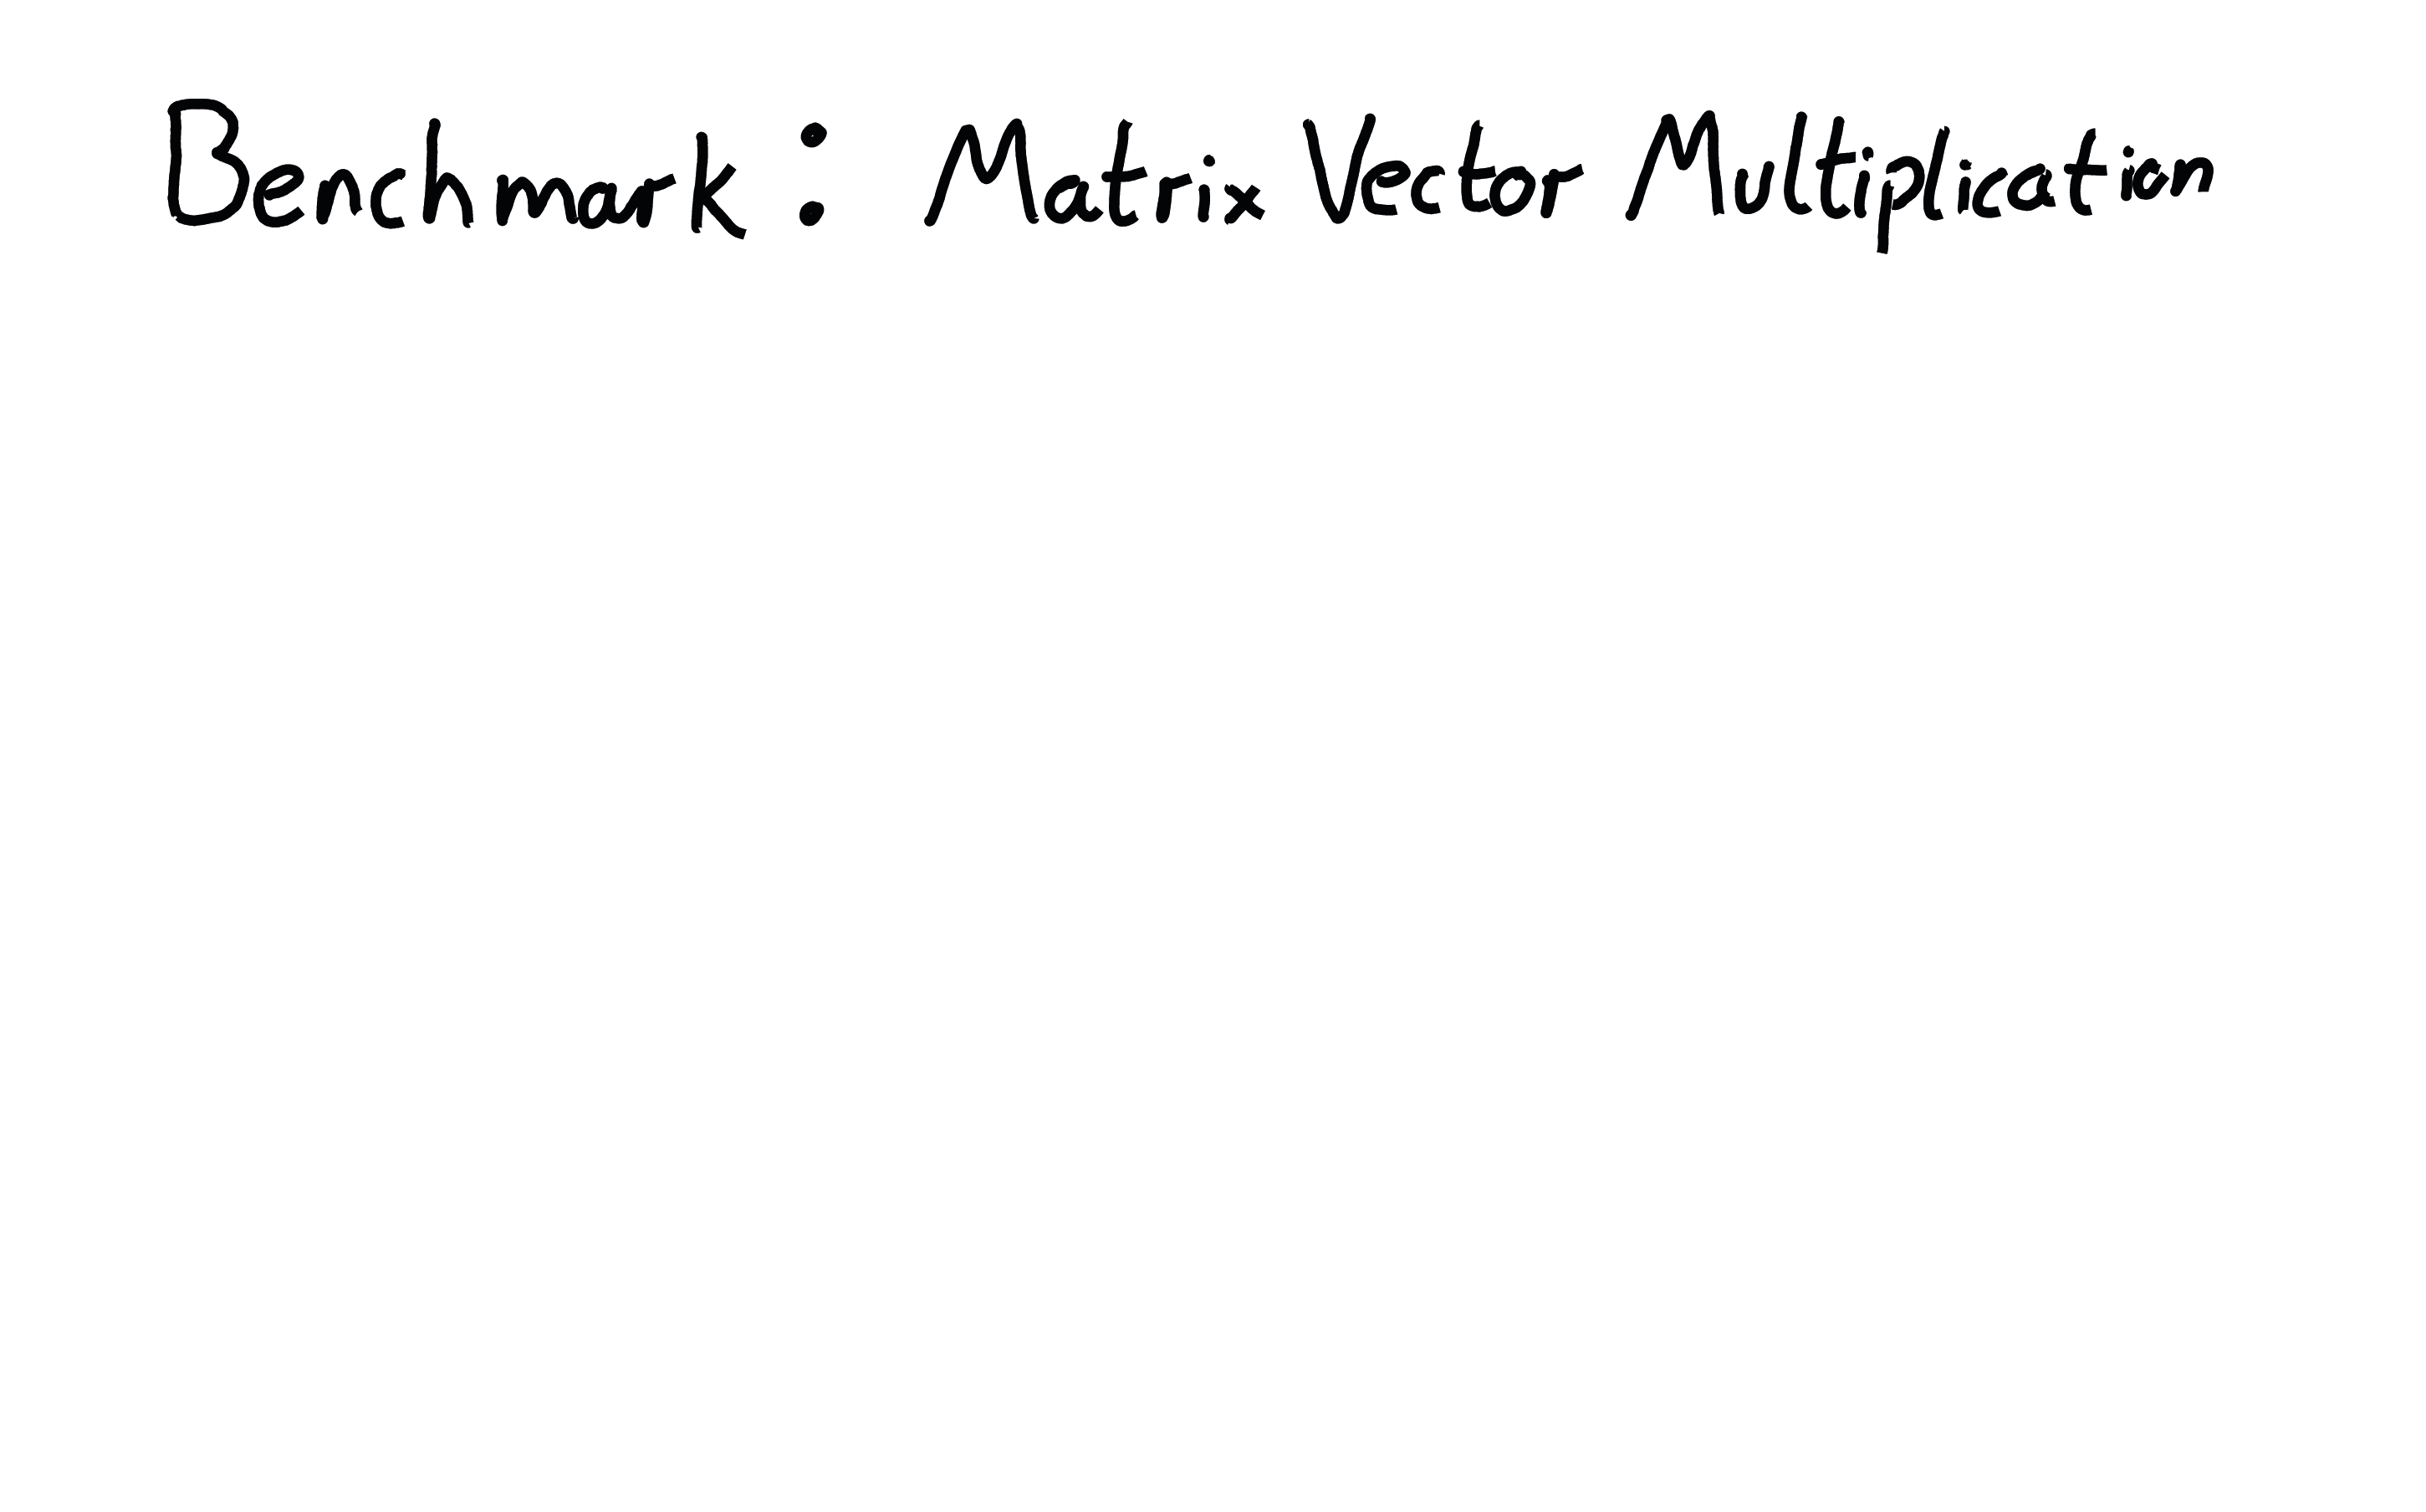 Benchmark : Matrix Vector Multiplication